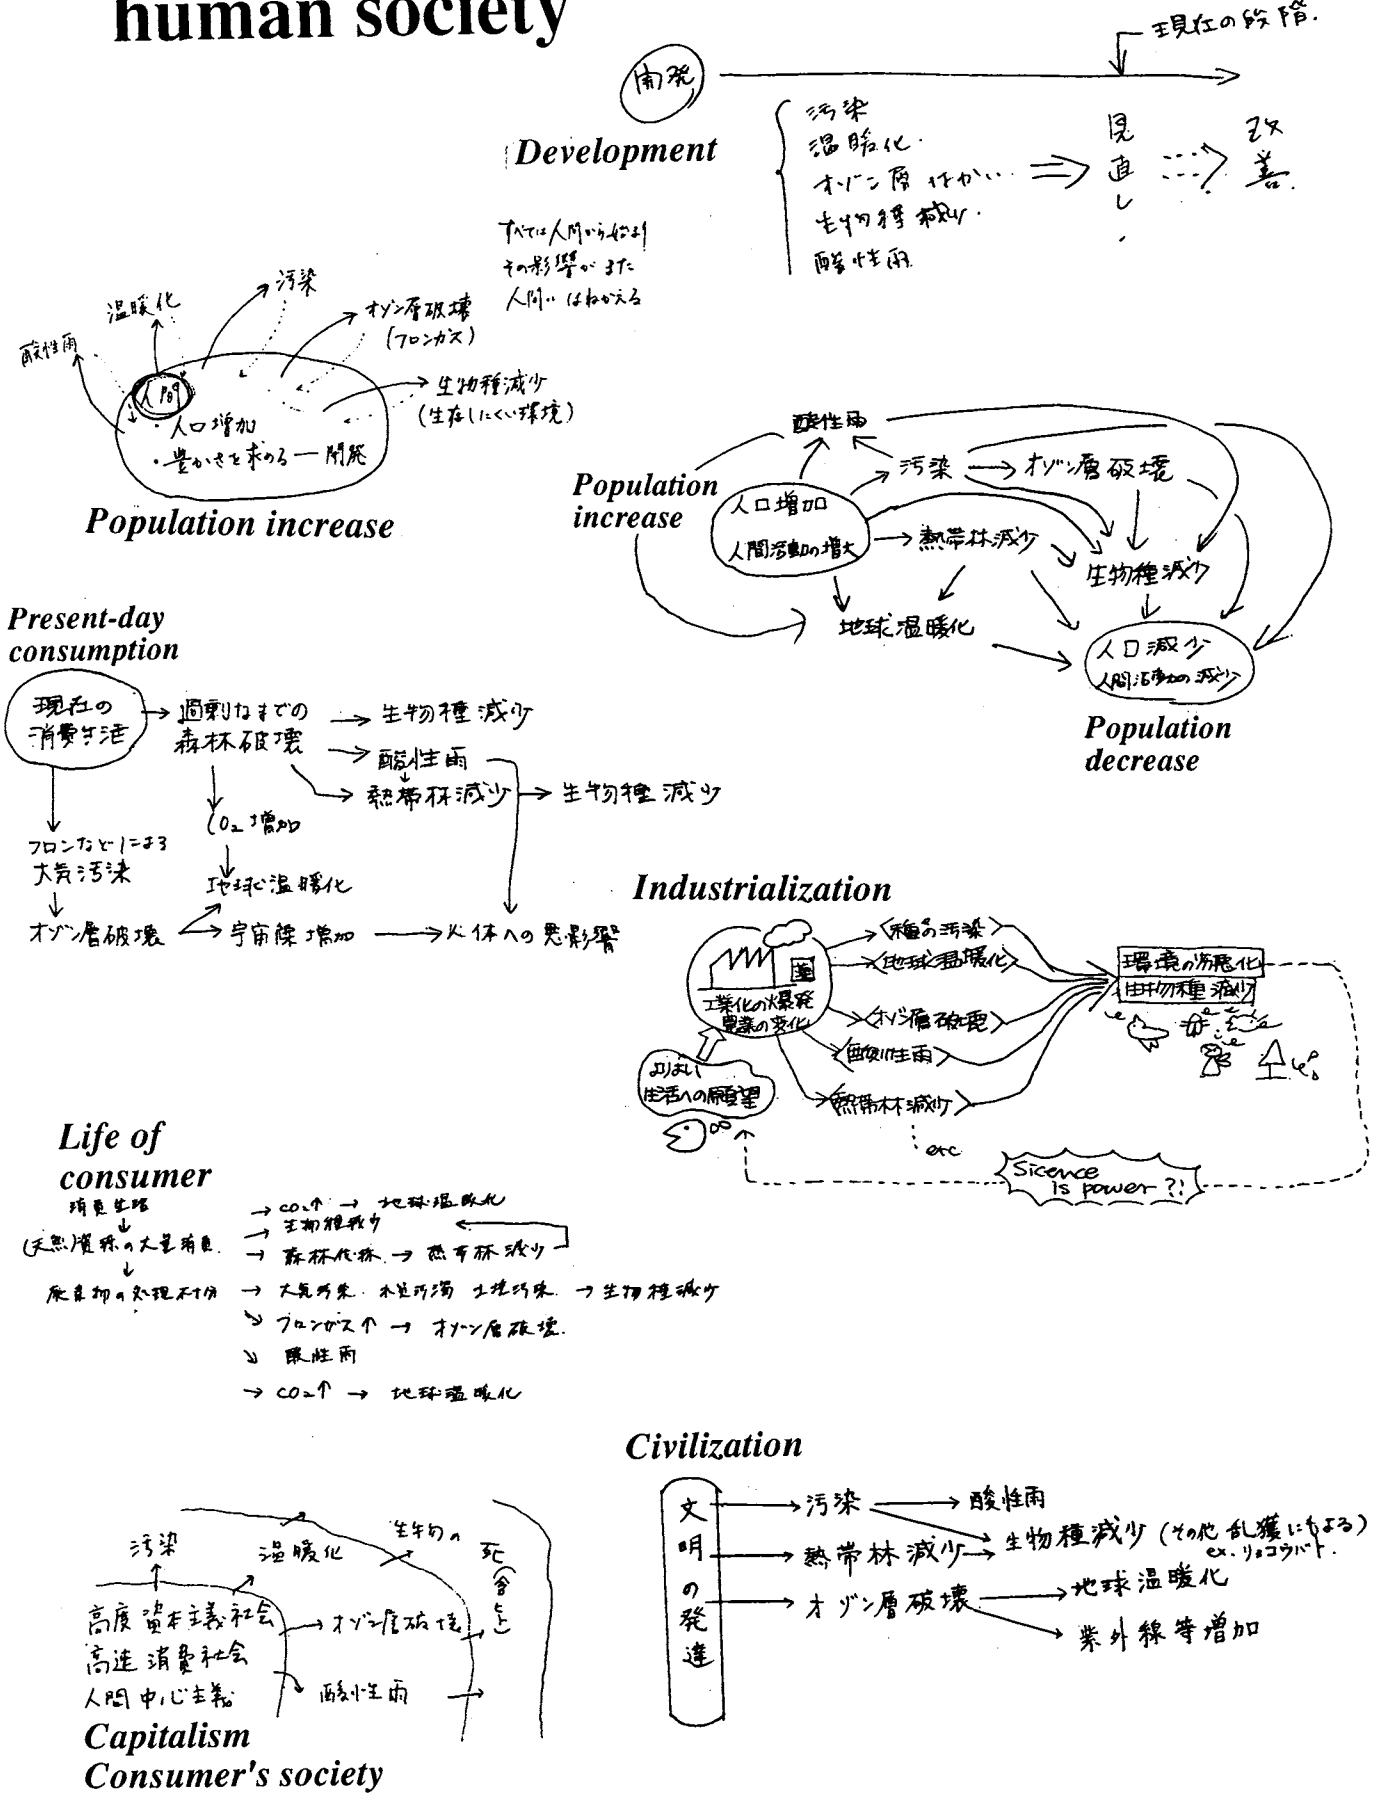 human society
現在の段階.
開発
Development
汚染
温暖化.
オゾン層はかい
生物種減少.
酸性雨
見直し.
改善.
すべては人間から始まり
その影響がまた
人間にはねかえる
酸性雨
温暖化
汚染
オゾン層破壊
(フロンガス)
生物種減少
(生存しにくい環境)
人間
・人口増加
・豊かさを求める―開発
Population increase
Population
increase
酸性雨
汚染
オゾン層破壊
人口増加
人間活動の増大
熱帯林減少
生物種減少
地球温暖化
人口減少
人間活動の減少
Population
decrease
Present-day
consumption
現在の
消費生活
過剰なまでの
森林破壊
生物種減少
酸性雨
熱帯林減少
生物種減少
CO₂増加
フロンなどによる
大気汚染
地球温暖化
オゾン層破壊
宇宙線増加
人体への悪影響
Industrialization
工業化の爆発
農業の変化
よりよい
生活への願望
<種の汚染>
<地球温暖化>
<オゾン層破壊>
<酸性雨>
<熱帯林減少>
etc
環境の劣悪化
生物種減少
Sicence
is power?!
Life of
consumer
消費生活
(天然)資源の大量消費
廃棄物の処理不十分
→ CO₂↑ → 地球温暖化
→ 生物種減少
→ 森林伐採 → 熱帯林減少
→ 大気汚染 水質汚濁 土壌汚染 → 生物種減少
↘ フロンガス↑ → オゾン層破壊.
↘ 酸性雨
→ CO₂↑ → 地球温暖化
Civilization
文明の発達
汚染
酸性雨
熱帯林減少
生物種減少 (その他 乱獲にもよる)
ex. リョコウバト.
オゾン層破壊
地球温暖化
紫外線等増加
汚染
温暖化
生物の
死
高度資本主義社会
高速消費社会
人間中心主義
オゾン層破壊
酸性雨
Capitalism
Consumer's society